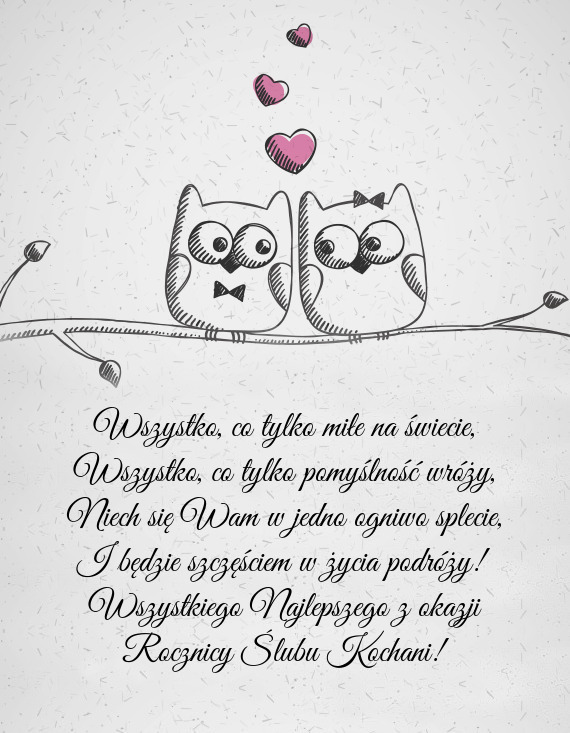 Wszystko, co tylko miłe na świecie,
Wszystko, co tylko pomyślność wróży,
Niech się Wam w jedno ogniwo splecie,
I będzie szczęściem w życia podróży!
Wszystkiego Najlepszego z okazji
Rocznicy Ślubu Kochani!